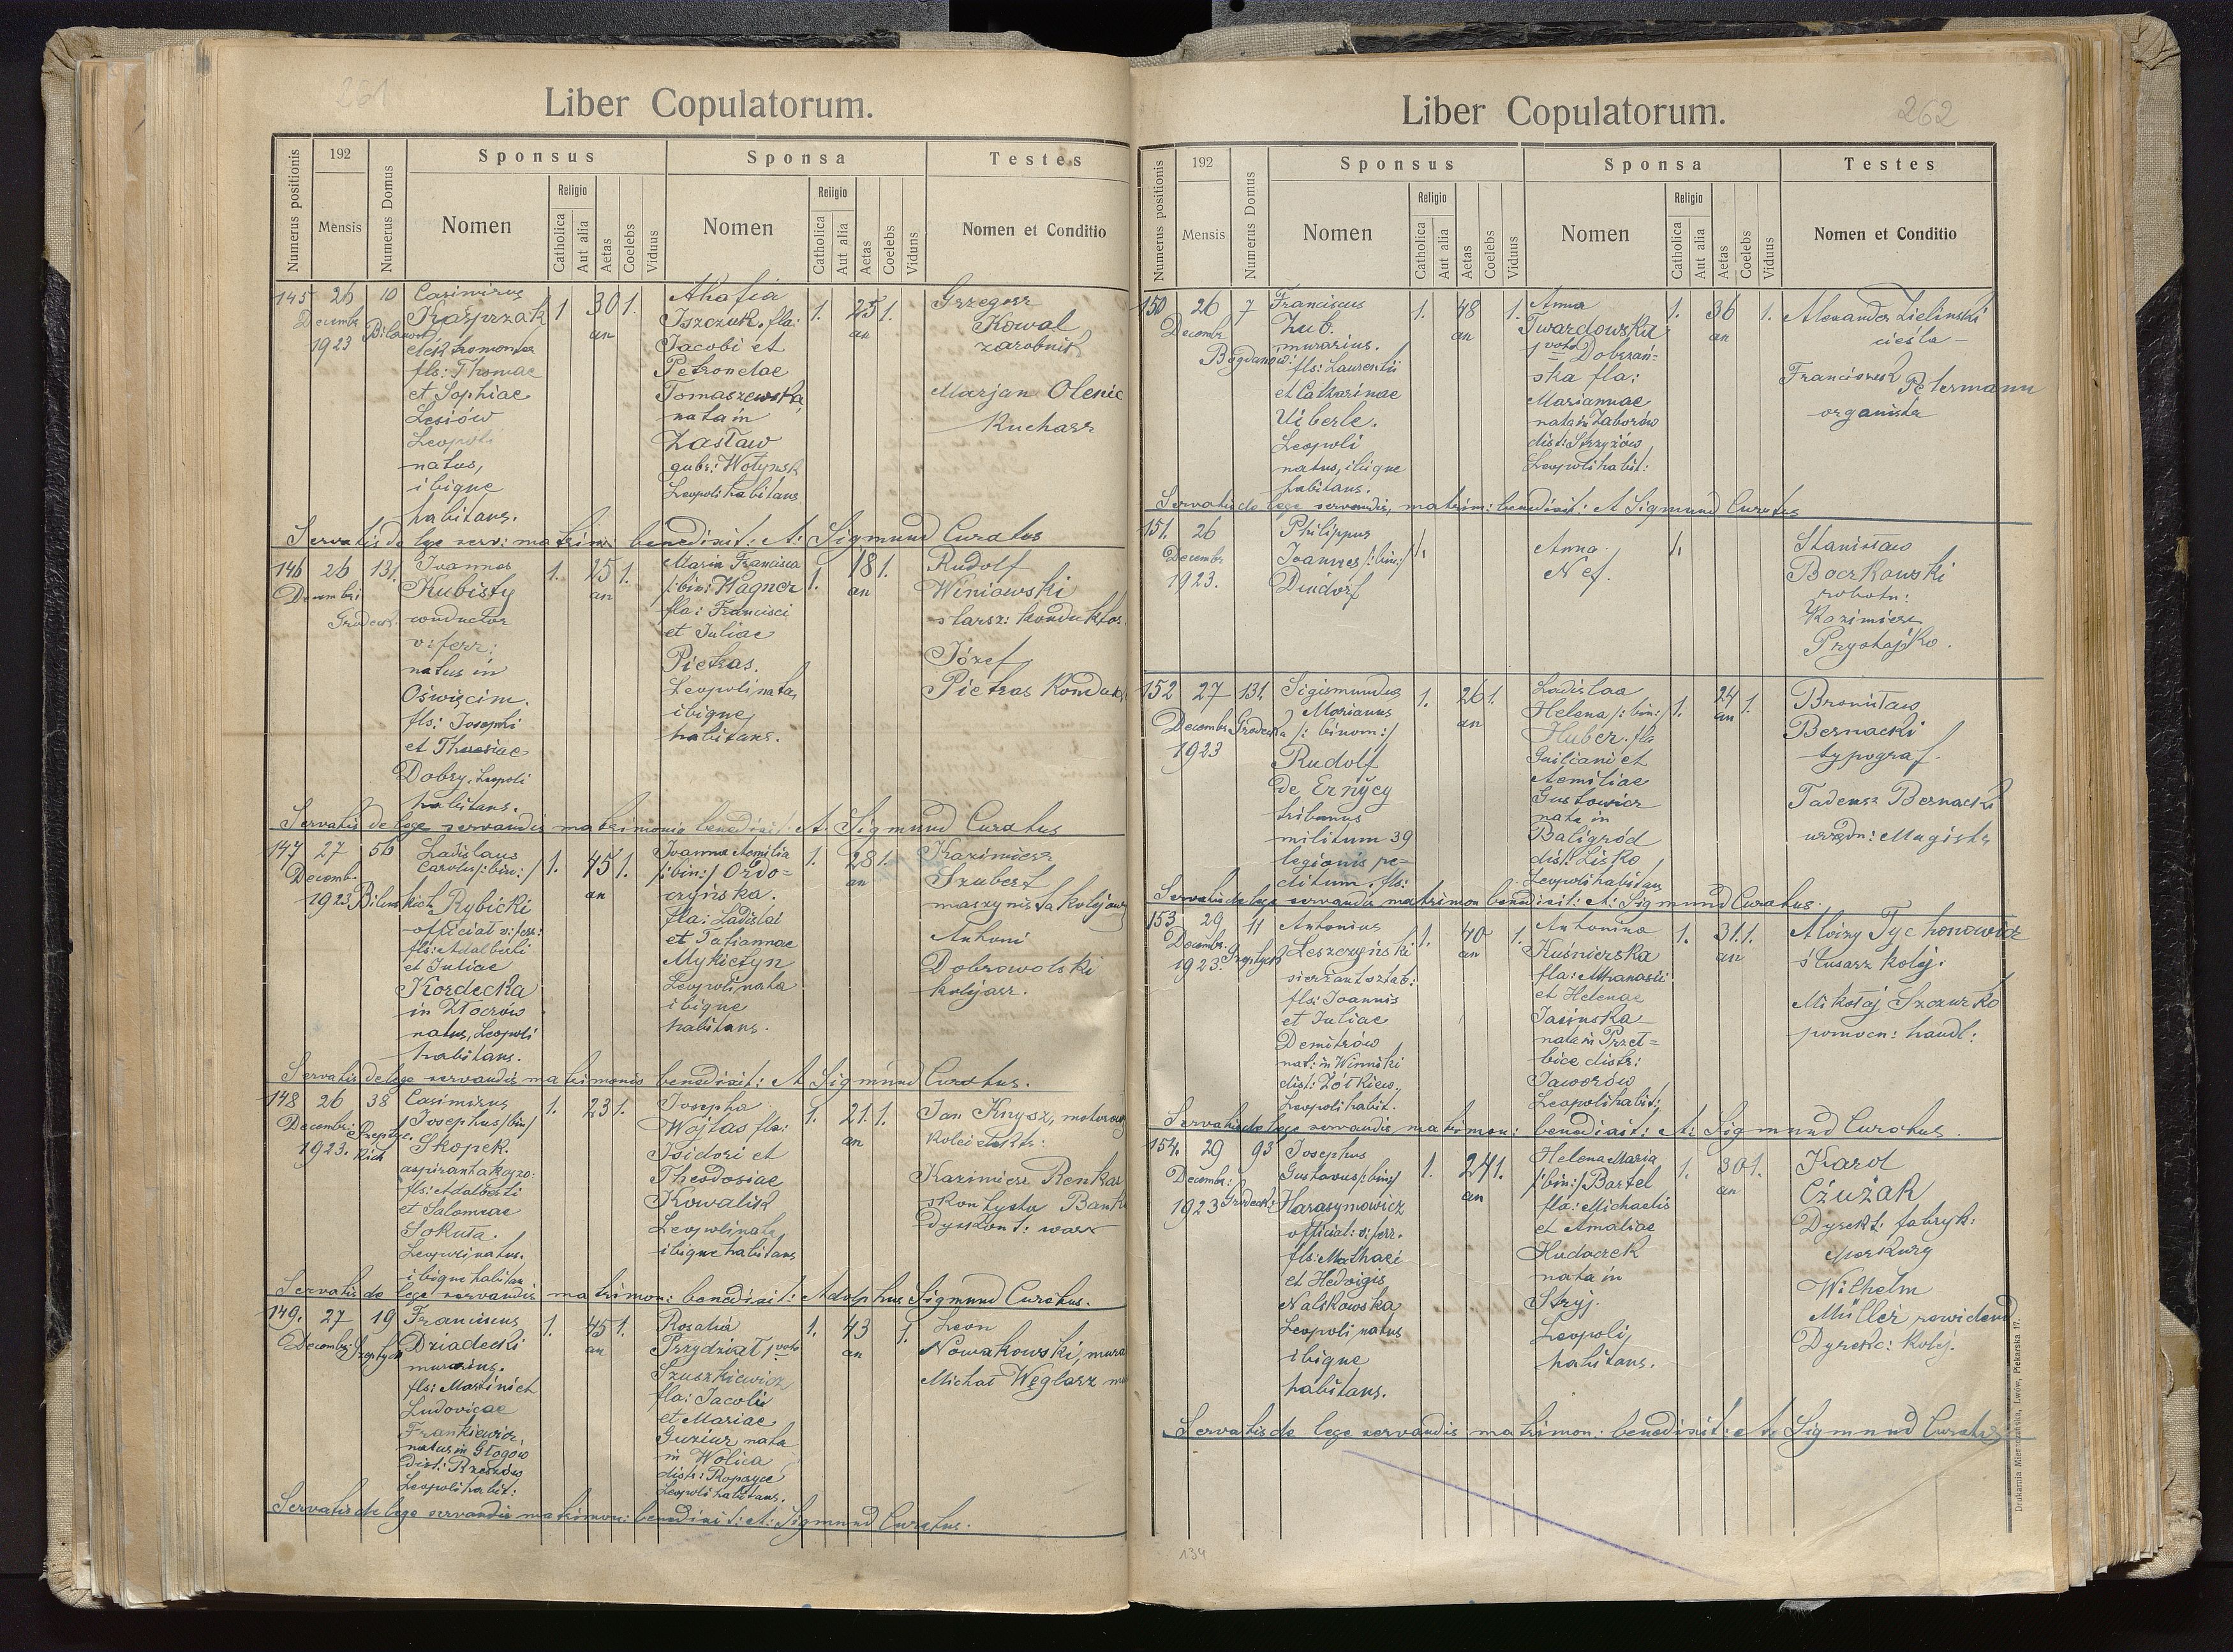 261
Liber Copulatorum.
Numerus positionis
192
Mensis
Numerus Domus
Sponsus
Nomen
Religio
Catholica
Aut alia
Aetas
Coelebs
Viduus
Sponsa
Nomen
Religio
Catholica
Aut alia
Aetas
Coelebs
Viduus
Testes
Nomen et Conditio
145 26 10
Decembr
1923
Casimirus
Kasprzak
elektromonter
fls: Thomae
et Sophiae
Lesiów
Leopoli
natus,
ibique
habitans.
1 30 1.
an
Akafia
Iszczuk. fla:
Jacobi et
Petronelae
Tomaszewska,
nata in
Zasław
gub: Wołynsk
Leopoli habitans
1. 25 1.
an
Grzegorz
Kowal,
zarobnik
Marjan Olenic
Kucharz
Servatis de lege serv: matrim: benedixit: A: Sigmund Curatus
146 26 131.
Decembr:
Gródeck:
Ioannes
Kubisty
conductor
v: ferr:
natus in
Oświęcim.
fls: Josephi
et Theresiae
Dobry, Leopoli
habitans.
1. 25 1.
an
Maria Francisca
/:bin:/ Wagner
fla: Francisci
et Juliae
Pietras.
Leopoli nata,
ibique,
habitans.
1. 18 1.
an
Rudolf
Winiowski
starsz: konduktor
Józef
Pietras Konduk
Servatis de lege servandis matrimonio benedixit: A. Sigmund Curatus
147 27 56
Decemb.
1923
Ladislaus
Carolus /:bin:/
Rybicki
official v: ferr:
fls: Adalberti
et Juliae
Kordecka
in Złoczów
natus, Leopoli
habitans.
1. 45 1.
an
Ioanna Aemilia
/:bin:/ Ordo=
czyńska.
fla: Ladislai
et Tatiannae
Mykietyn
Leopoli nata
ibique
habitans.
1. 28 1.
an
Kazimierz
Szubert
maszynista kolejowy
Antoni
Dobrowolski
kolejarz.
Servatis de lege servandis matrimonis benedixit: A Sigmund Curatus.
148 26 38
Decembr:
1923.
Casimirus
Josephus /bin/
Skopek.
fls: Adalberti
et Salomeae
Sokuła.
Leopoli natus.
ibique habitan
1. 23 1.
Josepha
Wojtas fla:
Isidori et
Theodosiae
Kowalisk
Leopoli nata,
ibique habitans
1. 21. 1.
an
Jan Knysz,
Kolei elektr:
Kazimierz Renkas
skontysta Banku
dyskont: warsz
Servatis de lege servandis matrimon: benedixit: Adolphus Sigmund Curatus.
149. 27 19
Decembr: Szeptyck
Franciscus
Dziadecki
murarius.
fls: Martini et
Ludovicae
Frankiewicz,
natus in Głogów
dist: Rzeszów
Leopoli habit:
1. 45 1.
an
Rosalia
Przydział 1 voto
Szuszkiewicz
fla: Jacobi
et Mariae
Guziur nata
in Wolica
distr: Ropczyce
Leopoli habitans.
1. 43 1.
an
Leon
Nowakowski, mura
Michał Węglarz mu
Servatis de lege servandis matrimon: benedixit: A: Sigmund Curatus.
262
Liber Copulatorum.
Numerus positionis
192
Mensis
Numerus Domus
Sponsus
Nomen
Religio
Catholica
Aut alia
Aetas
Coelebs
Viduus
Sponsa
Nomen
Religio
Catholica
Aut alia
Aetas
Coelebs
Viduus
Testes
Nomen et Conditio
150 26 7
Decembr
Bogdanów:
Franciscus
Zub.
murarius.
fls: Laurentii
et Catharinae
Uiberle.
Leopoli
natus, ibique
habitans.
1. 48 1.
an
Anna
Twardowska
1 voto Dobrzań=
ska fla:
Mariannae
nata in Zaborów
dist: Strzyżów,
Leopoli habit:
1. 36 1.
an
Alexander Zielinski
ciesla -
Franciszek Petermann
organista
Servatis de lege servandis, matrim: benedixit: A Sigmund Curatus
151. 26
Decembr
1923.
Philippus
Joannes /:bin:/
Dindorf
1.
Anna
Nef.
1.
Stanisław
Boczkowski
robotn:
Kazimierz
Przystajko.
152 27 131.
Decembr Gródecka
1923
Sigismundus
Marianus
/: binom:/
Rudolf
de Ernÿcy
tribunus
militum 39
legionis pe=
ditum. fls:
1. 26 1.
an
Ladislaa
Helena /:bin:/
Huber. fla
Guiliani et
Aemiliae
Gustowicz
nata in
Baligród
dist: Lisko,
Leopoli habitan
1. 24 1.
an
Bronisław
Bernacki
typograf.
Tadeusz Bernacki
urzędn: Magistr
Servatis de lege servandis matrimon benedixit: A: Sigmund Curatus.
153 29 11
Decembr.
1923. Szeptyck
Antonius
Leszczyński
sierżant sztab:
fls: Joannis
et Juliae
Demitrów,
nat: in Winniki
dist: Żółkiew,
Leopoli habit.
1. 40 1.
an
Antonina
Kuśnierska
fla: Athanasii
et Helenae
Jasinska
nata in Przeł=
bice distr:
Jaworów,
Leopoli habit:,
1. 31. 1.
an
Aloizy Tychonowicz
ślusarz kolej:
Mikołaj Szczurko
pomocn: handl:
Servatis de lege servandis matrimon: benedixit: A: Sigmund Curatus.
154. 29 93
Decembr:
1923 Gródeck:
Josephus
Gustavus /:bin:/
Harasymowicz
official: v: ferr.
fls: Mathaei
et Hedvigis
Nalskowska
Leopoli natus
ibique
habitans.
1. 24 1.
an
Helena Maria
/:bin:/ Bartel
fla: Michaelis
et Amaliae
Hudaczek
nata in
Stryj.
Leopoli,
habitans.
1. 30 1.
an
Karol
Czużak
Dyrekt: fabryk:
Merkury
Wilhelm
Müller rewident
Dyrekc: kolej.
Servatis de lege servandis matrimon: benedixit: A. Sigmund Curatus
Drukarnia Mieszczańska, Lwów, Piekarska 17.
134